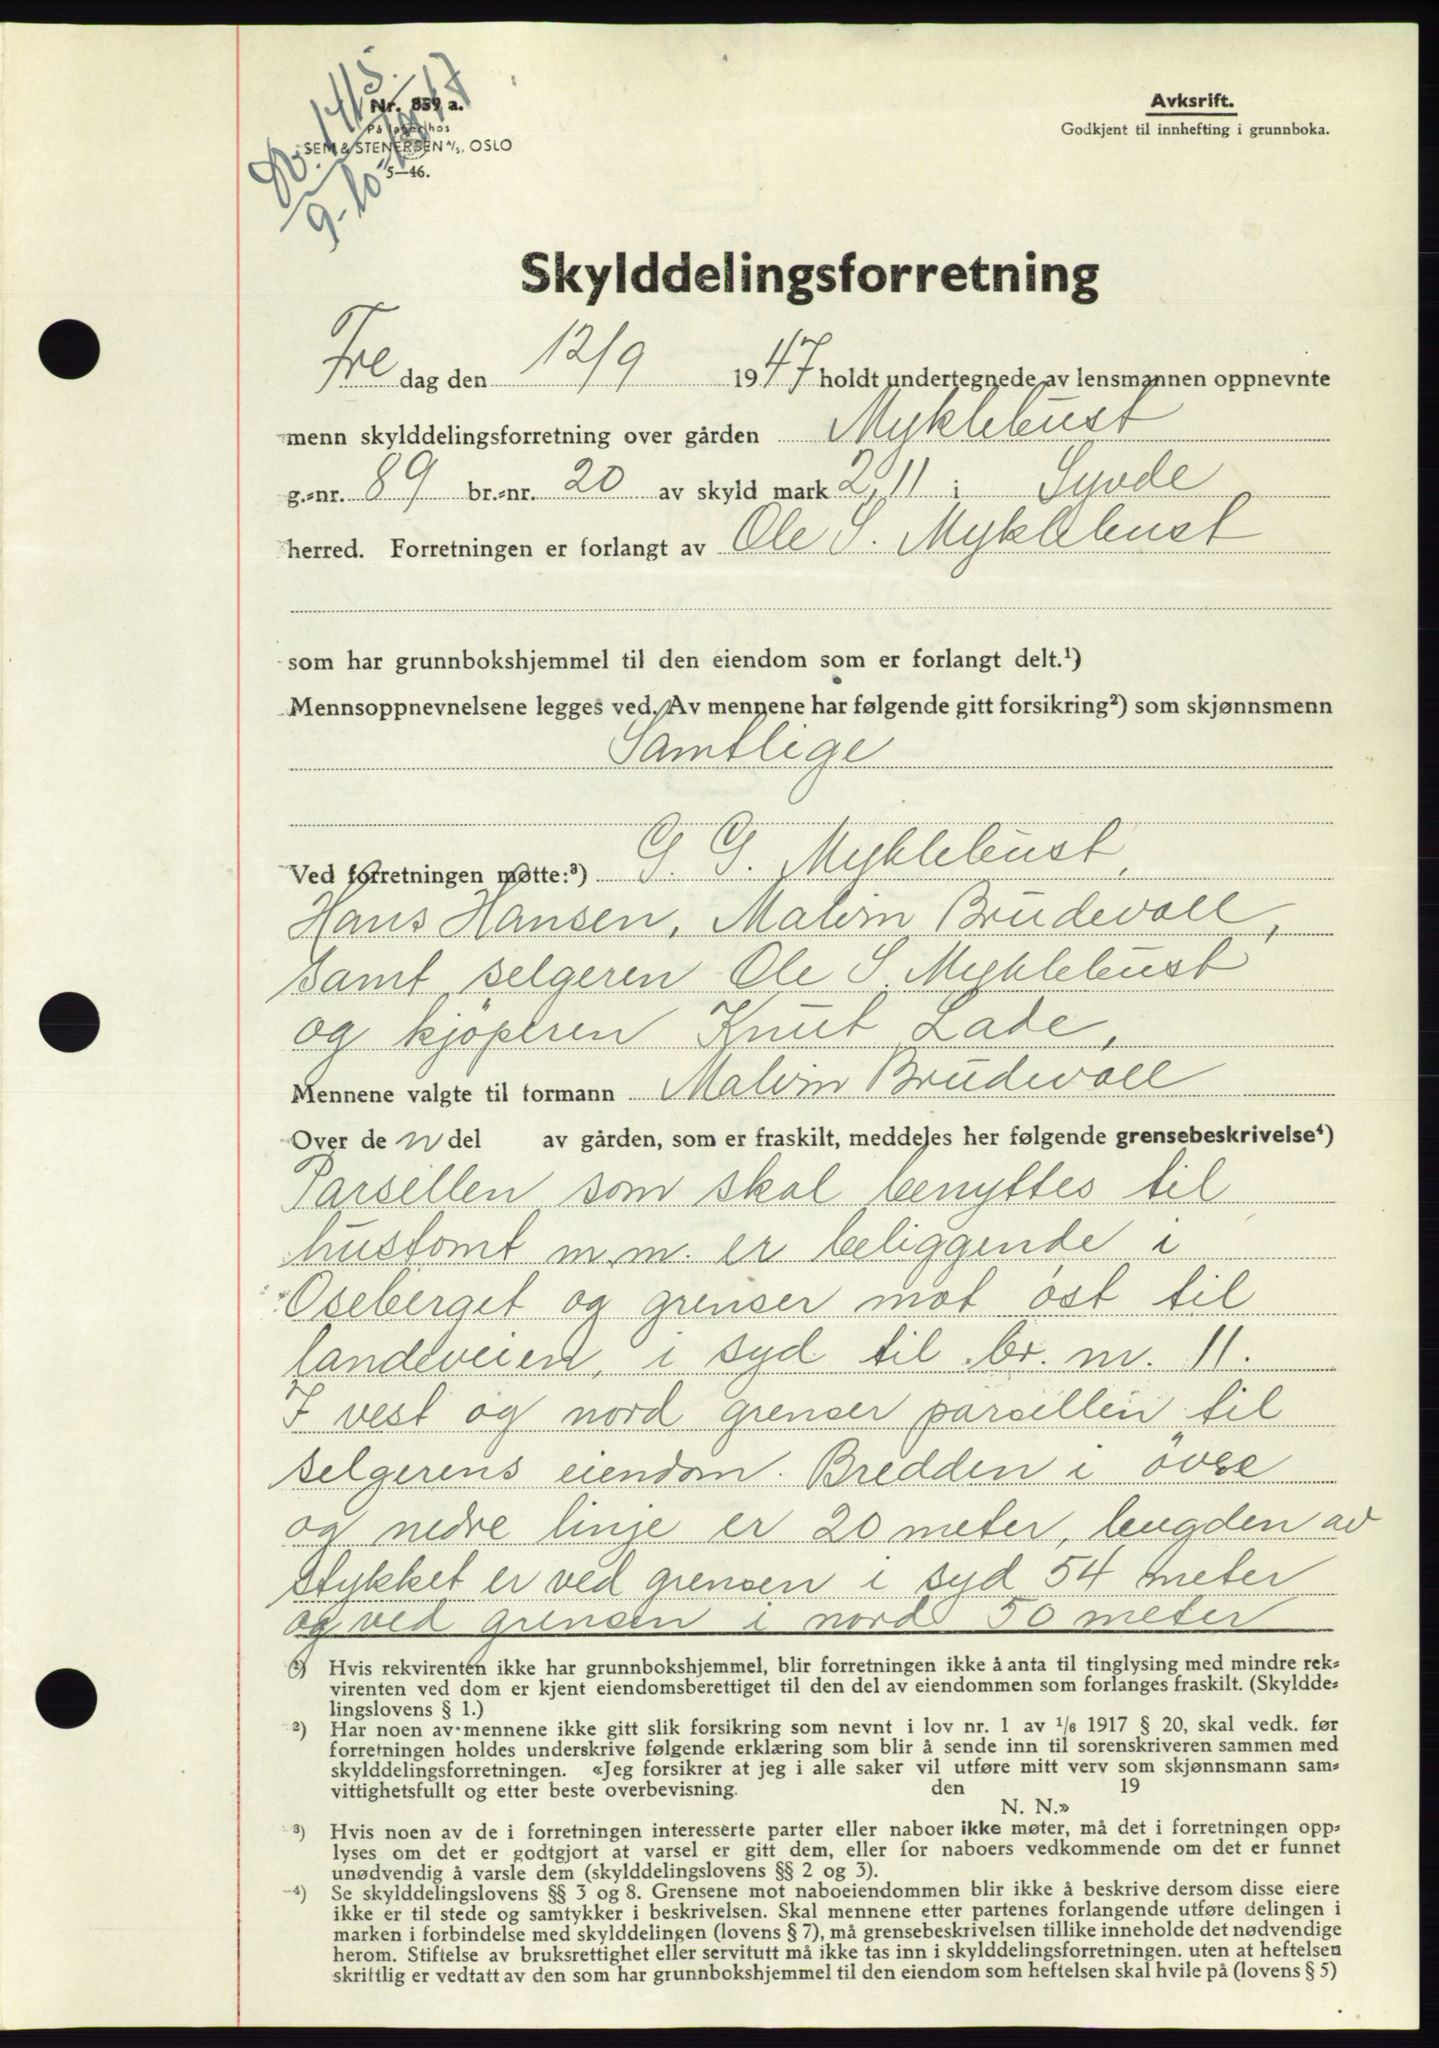 Db. 1415.
9-10-1947
Nr. 859 a.
På lager hos
SEM & STENERSEN A/S, OSLO
5—46.
Avksrift.
Godkjent til innhefting i grunnboka.
Skylddelingsforretning
Fre dag den 12/9 1947 holdt undertegnede av lensmannen oppnevnte
menn skylddelingsforretning over gården Myklebust
g.=nr. 89 br.=nr. 20 av skyld mark 2,11 i Syvde
herred. Forretningen er forlangt av Ole S. Myklebust
som har grunnbokshjemmel til den eiendom som er forlangt delt.¹)
Mennsoppnevnelsene legges ved. Av mennene har følgende gitt forsikring²) som skjønnsmenn
Samtlige
Ved forretningen møtte:³) G. G. Myklebust,
Hans Hansen, Malvin Brudevoll,
samt selgeren Ole S. Myklebust
og kjöperen Knut Lade,
Mennene valgte til formann Malvin Brudevoll
Over de n del av gården, som er fraskilt, meddeles her følgende grensebeskrivelse⁴)
Parsellen som skal benyttes til
hustomt m.m. er beliggende i
Oseberget og grenser mot øst til
landeveien, i syd til br. nr. 11.
I vest og nord grenser parsellen til
selgerens eiendom. Bredden i övre
og nedre linje er 20 meter, lengden av
stykket er ved grensen i syd 54 meter
og ved grensen i nord 50 meter
¹) Hvis rekvirenten ikke har grunnbokshjemmel, blir forretningen ikke å anta til tinglysing med mindre rek=
virenten ved dom er kjent eiendomsberettiget til den del av eiendommen som forlanges fraskilt. (Skyldde=
lingslovens § 1.)
²) Har noen av mennene ikke gitt slik forsikring som nevnt i lov nr. 1 av 1/6 1917 § 20, skal vedk. før
forretningen holdes underskrive følgende erklæring som blir å sende inn til sorenskriveren sammen med
skylddelingsforretningen. «Jeg forsikrer at jeg i alle saker vil utføre mitt verv som skjønnsmann sam=
vittighetsfullt og etter beste overbevisning. den 19
N. N.»
³) Hvis noen av de i forretningen interesserte parter eller naboer ikke møter, må det i forretningen opp=
lyses om det er godtgjort at varsel er gitt dem, eller for naboers vedkommende om det er funnet
unødvendig å varsle dem (skylddelingslovens §§ 2 og 3).
⁴) Se skylddelingslovens §§ 3 og 8. Grensene mot naboeiendommen blir ikke å beskrive dersom disse eiere
ikke er til stede og samtykker i beskrivelsen. Skal mennene etter partenes forlangende utføre delingen i
marken i forbindelse med skylddelingen (lovens § 7), må grensebeskrivelsen tillike inneholde det nødvendige
herom. Stiftelse av bruksrettighet eller servitutt må ikke tas inn i skylddelingsforretningen. uten at heftelsen
skriftlig er vedtatt av den som har grunnbokshjemmel til den eiendom som heftelsen skal hvile på (lovens § 5)